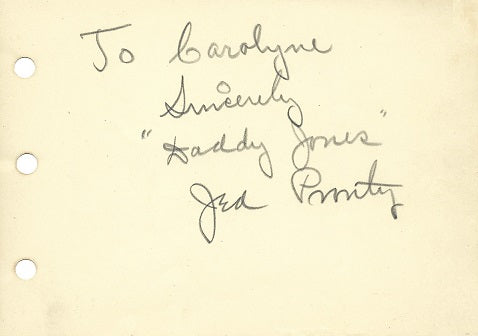 To Carolyne
Sincerely
"Daddy Jones"
Jed Prouty